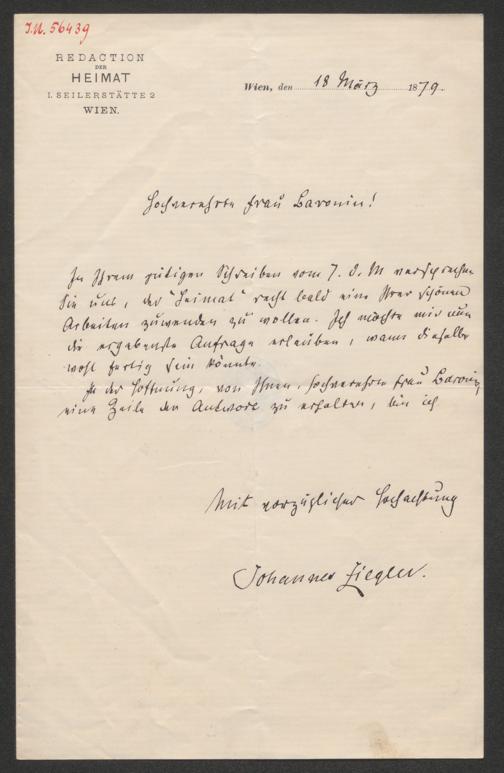 I.N. 56439
REDACTION
DER
HEIMAT
I. SEILERSTÄTTE 2
WIEN.
Wien, den 18 März 1879.
Hochverehrte Frau Baronin!
In Ihrem gütigen Schreiben vom 7. d. M versprachen
Sie uns, der "Heimat" recht bald eine Ihrer schönen
Arbeiten zuwenden zu wollen. Ich möchte mir nun
die ergebenste Anfrage erlauben, wann dieselbe
wohl fertig sein könnte.
In der Hoffnung, von Ihnen, hochverehrte Frau Baronin,
eine Zeile der Antwort zu erhalten, bin ich
Mit vorzüglicher Hochachtung
Johannes Ziegler.